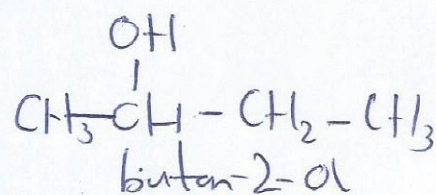 OH
CH₃—CH–CH₂–CH₃
butan-2-ol